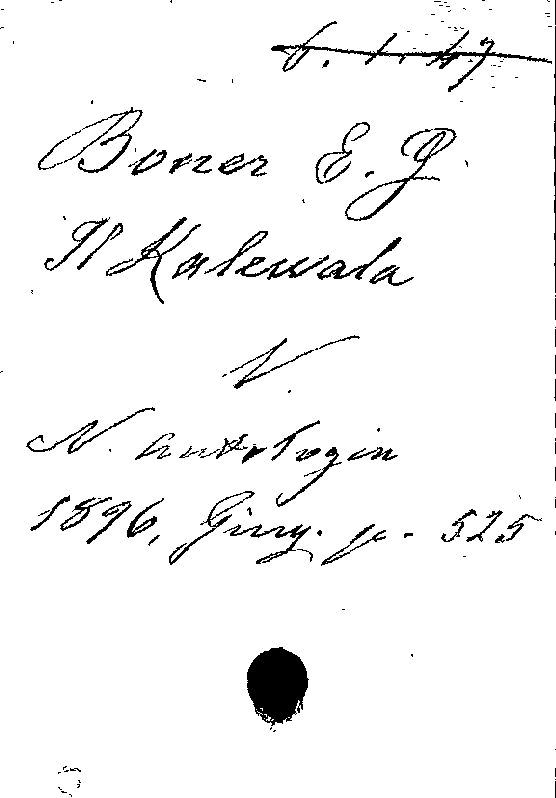 6. 1. 47
Boner E. G.
Il Kalewala
V.
N. Antologia
1896, Giug. p. 525